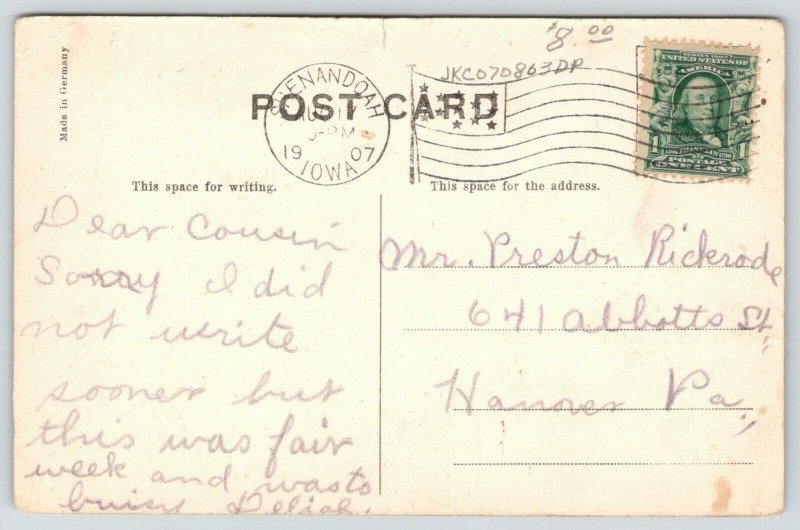 $8.00
JKC07D863DP
Made in Germany
SHENANDOAH
AUG
-PM
1907
IOWA
POST CARD
SERIES 1902
UNITED STATES OF
AMERICA
1 1
POSTAGE
ONE CENT
This space for writing.
This space for the address.
Dear Cousin
Sorry I did
not write
sooner but
this was fair
week and was to
buisy Deliah.
Mr. Preston Rickrode
641 Abbotts St.
Hanover Pa.,